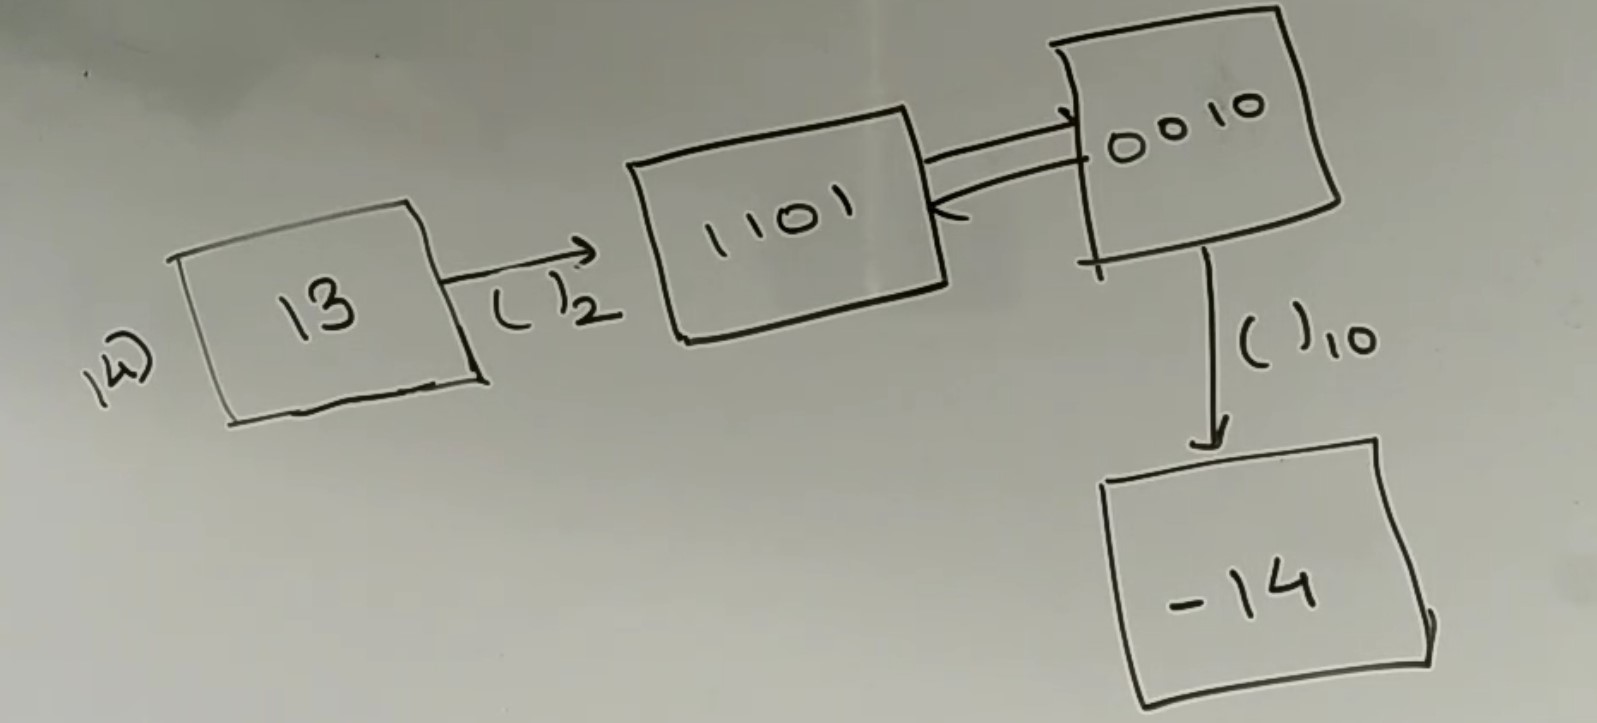 14)
13
( )2
1101
0010
( )10
-14